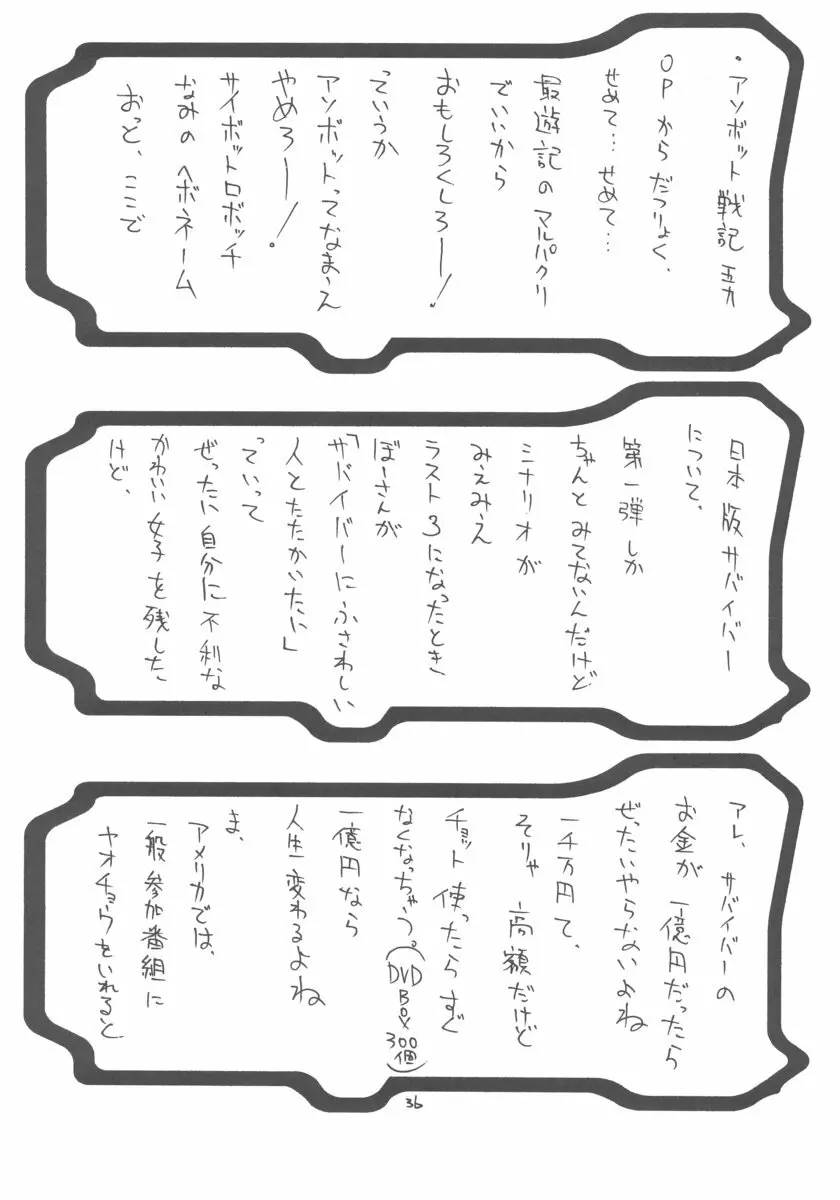 ・アソボット戦記五九
OPからだつりょく、
せめて…せめて…
最遊記のマルパクリ
でいいから
おもしろくしろー！
っていうか
アソボットってなまえ
やめろー！
サイボットロボッチ
なみのヘボネーム
おっと、ここで
日本版サバイバー
について、
第一弾しか
ちゃんとみてないんだけど
ミナリオが
みえみえ
ラスト3になったとき
ぼーさんが
「サバイバーにふさわしい
人とたたかいたい」
っていって
ぜったい自分に不利な
かわいい女子を残した、
けど、
アレ、サバイバーの
お金が一億円だったら
ぜったいやらないよね
一千万円て、
そりゃ高額だけど
チョット使ったらすぐ
なくなっちゃう。(DVDBOX300個)
一億円なら
人生変わるよね
ま、
アメリカでは、
一般参加番組に
ヤオチョウをいれると
36